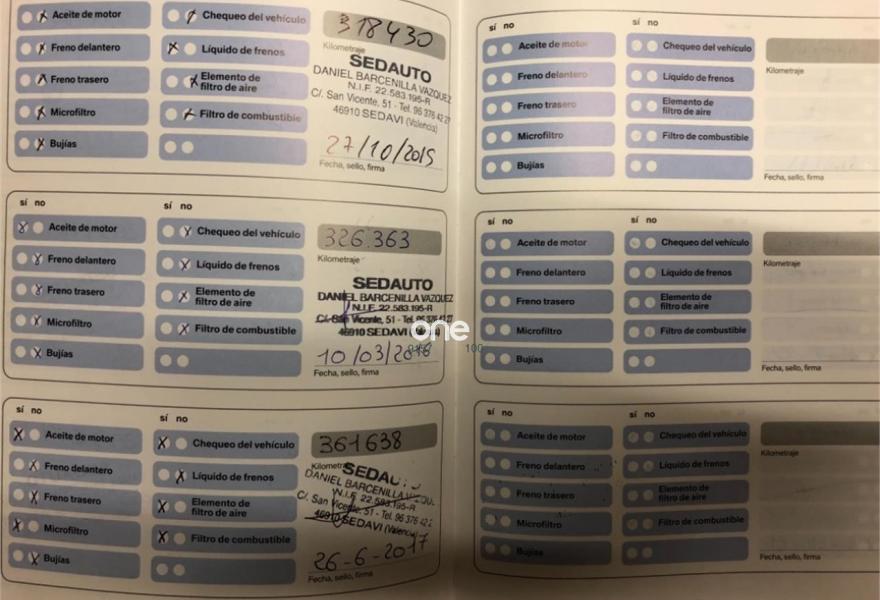 Aceite de motor
Chequeo del vehículo
318430
Freno delantero
Líquido de frenos
Kilometraje
SEDAUTO
Freno trasero
Elemento de
filtro de aire
DANIEL BARCENILLA VAZQUEZ
N.I.F. 22.583.195-R
C/. San Vicente, 51 - Tel. 96 376 42 27
46910 SEDAVI (Valencia)
Microfiltro
Filtro de combustible
Bujías
27/10/2015
Fecha, sello, firma
sí no
sí no
Aceite de motor
Chequeo del vehículo
326.363
Kilometraje
Freno delantero
Líquido de frenos
SEDAUTO
Freno trasero
Elemento de
filtro de aire
DANIEL BARCENILLA VAZQUEZ
N.I.F. 22.583.195-R
C/. San Vicente, 51 - Tel.
46910 SEDAVI
Microfiltro
Filtro de combustible
Bujías
10/03/2016
Fecha, sello, firma
sí no
sí no
Aceite de motor
Chequeo del vehículo
361638
Freno delantero
Líquido de frenos
Kilometraje
DANIEL BARCENILLA
N.I.F. 22.583.195-R
C/. San Vicente, 51 - Tel. 96 376 42
46910 SEDAVI (Valencia)
Freno trasero
Elemento de
filtro de aire
Microfiltro
Filtro de combustible
Bujías
26-6-2017
Fecha, sello, firma
sí no
sí no
Aceite de motor
Chequeo del vehículo
Kilometraje
Freno delantero
Líquido de frenos
Freno trasero
Elemento de
filtro de aire
Microfiltro
Filtro de combustible
Bujías
Fecha, sello, firma
sí no
sí no
Aceite de motor
Chequeo del vehículo
Kilometraje
Freno delantero
Líquido de frenos
Freno trasero
Elemento de
filtro de aire
Microfiltro
Filtro de combustible
Bujías
Fecha, sello, firma
sí no
sí no
Aceite de motor
Chequeo del vehículo
Kilometraje
Freno delantero
Líquido de frenos
Freno trasero
Elemento de
filtro de aire
Microfiltro
Filtro de combustible
Bujías
Fecha, sello, firma
one